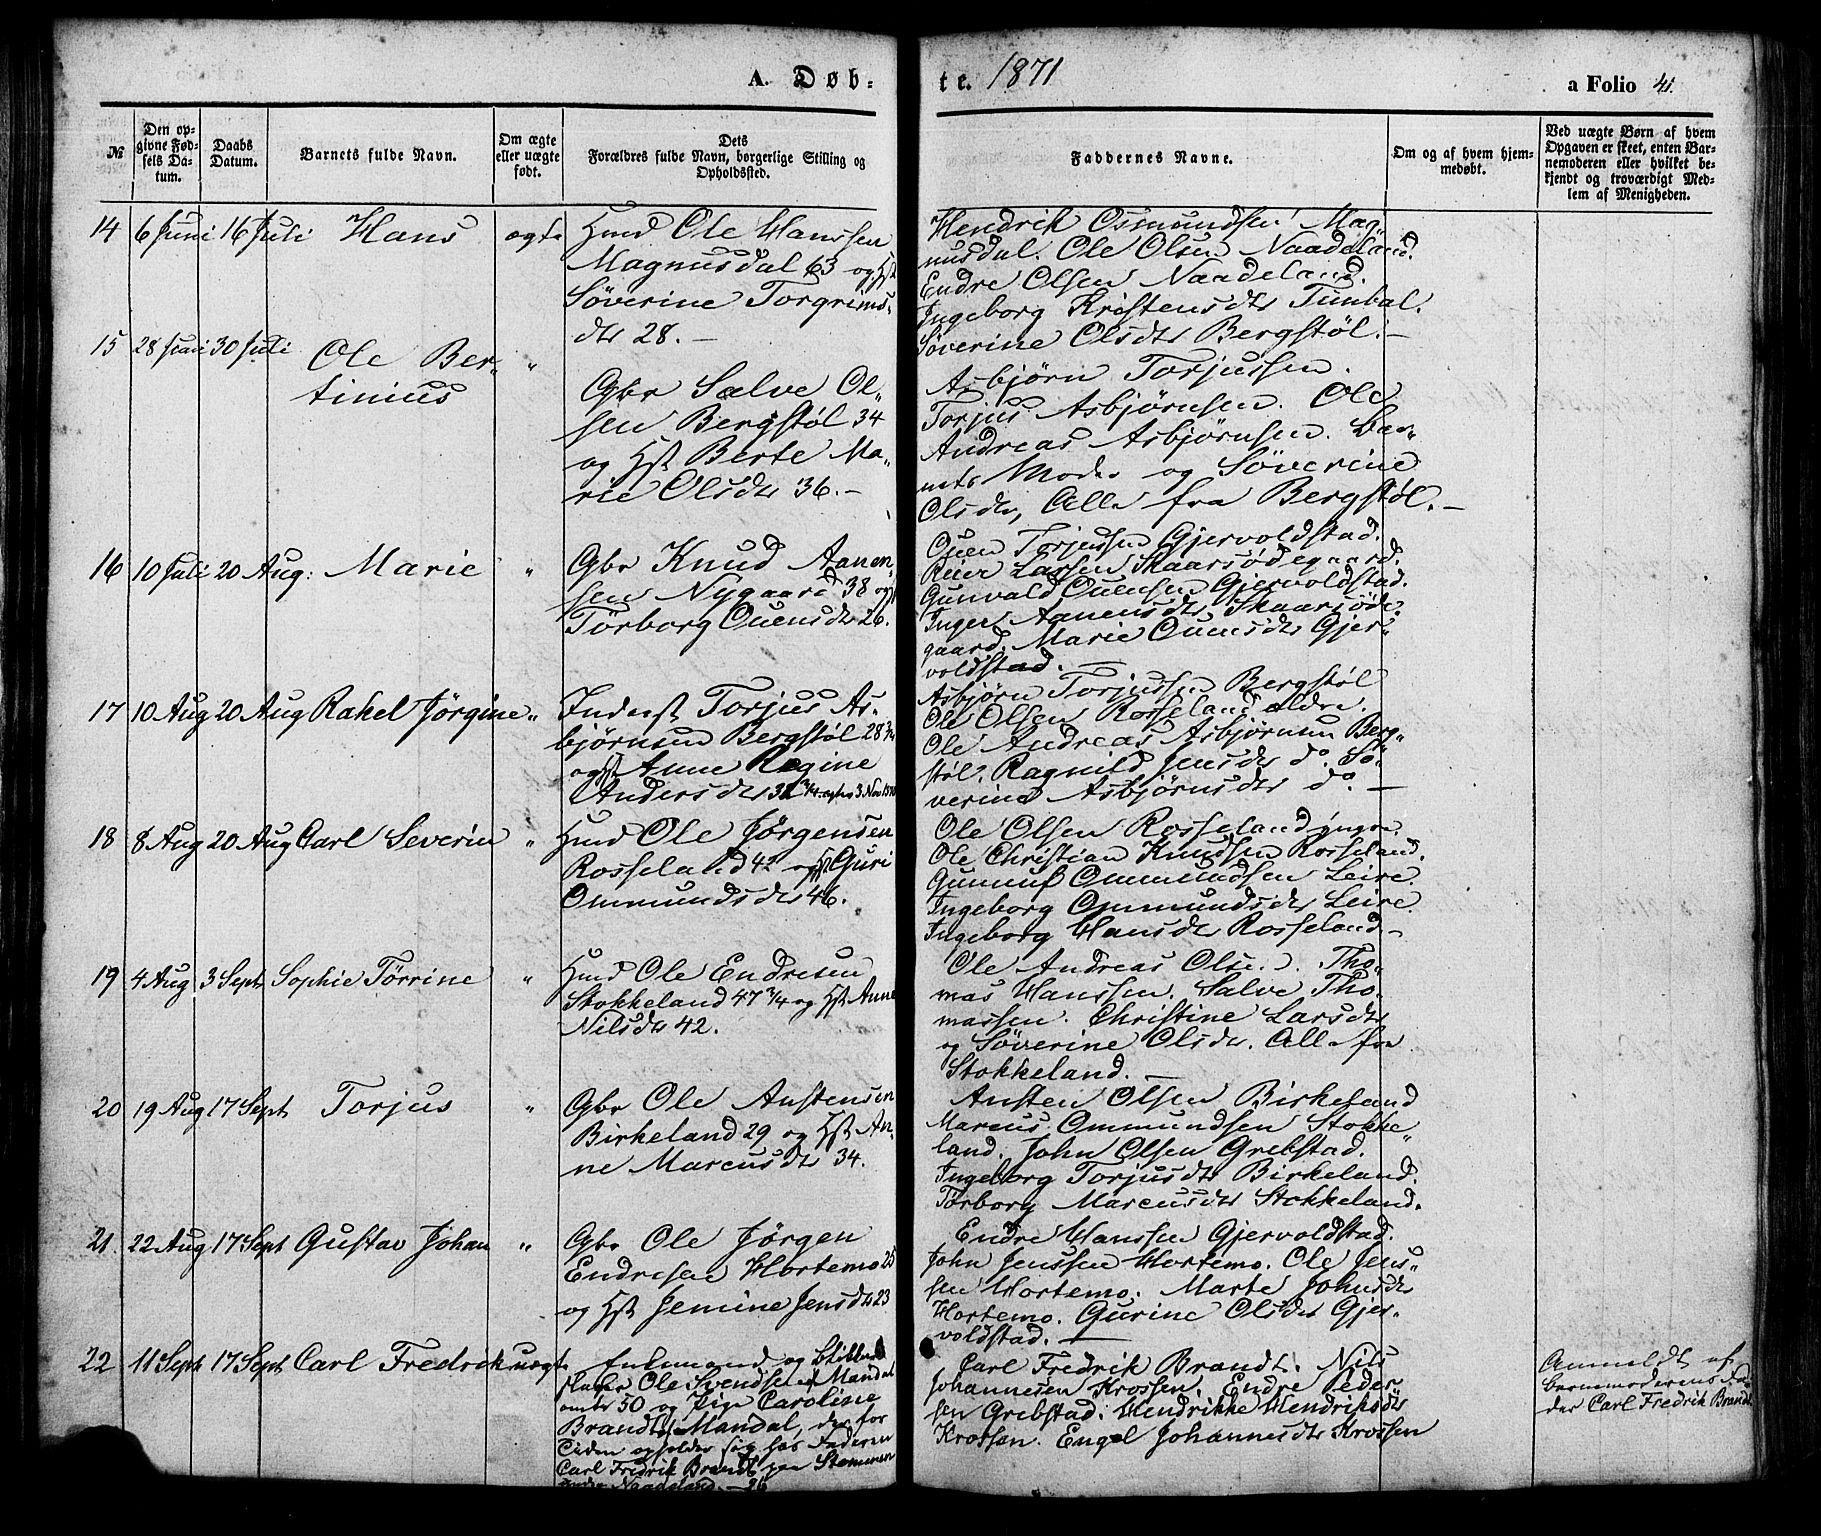 A. Døb-
te. 1871
a Folio 41.
№
Den op-
givne Fød-
sels Da-
tum.
Daabs
Datum.
Barnets fulde Navn.
Om ægte
eller uægte
født.
Dets
Forældres fulde Navn, borgerlige Stilling og
Opholdssted.
Faddernes Navne.
Om og af hvem hjem-
medøbt.
Ved uægte Børn af hvem
Opgaven er skeet, enten Bar-
nemoderen eller hvilket be-
kjendt og troværdigt Med-
lem af Menigheden.
14 6 Juni 16 Juli Hans ægte
Hmd Ole Hanssen
Magnusdal 63 og Hst
Söverine Torgrims-
dtr 28. —
Hendrik Osmundsen Mag-
nusdal. Ole Olsen Naadeland.
Endre Olsen Naadeland.
Ingeborg Kristensdtr Tunbal.
Söverine Olsdtr Bergstøl. —
15 28 Juni 30 Juli Ole Ber-
tinius "
Gbr Salve Ol-
sen Bergstøl 34
og Hst Berte Ma-
rie Olsdtr 36. —
Asbjørn Torjussen.
Torjus Asbjørnsen. Ole
Andreas Asbjørnsen. Bar-
nets Moder og Söverine
Olsdtr, Alle fra Bergstøl. —
16 10 Juli 20 Aug: Marie "
Gbr Knud Aanen-
sen Nygaard 38 og Hst
Tørborg Ouensdtr 26.
Ouen Torjussen Gjervoldstad.
Reier Larsen Skaarsødegaard.
Gunvald Ouensen Gjervoldstad.
Inger Aanensdtr Skaarsøde-
gaard. Marie Ouensdtr Gjer-
voldstad. —
17 10 Aug 20 Aug Rakel Jörgine "
Inderst Torjus As-
bjørnsen Bergstøl 28 3/4
og Hst Anne Regine
Andersdtr 32 3/4
Asbjørn Torjussen Bergstøl
Ole Olsen Rosseland ældre.
Ole Andreas Asbjørnsen Berg-
støl. Ragnild Jensdtr do. Sö-
verine Asbjørnsdtr do. —
18 8 Aug 20 Aug Carl Severin "
Hmd Ole Jörgensen
Rosseland 42 og Hst Guri
Ommundsdtr 46.
Ole Olsen Rosseland yngre.
Ole Christian Knudsen Rosseland.
Gunnuf Ommundsen Leire.
Ingeborg Ommundsdtr Leire.
Ingeborg Hansdtr Rosseland —
19 4 Aug 3 Sept Sophie Törrine "
Hmd Ole Endresen
Stokkeland 47 3/4 og Hst Anne
Nilsdtr 42.
Ole Andreas Olsen. Tho-
mas Hanssen. Salve Tho-
massen. Christine Larsdtr
og Söverine Olsdtr. Alle fra
Stokkeland. —
20 19 Aug 17 Sept Torjus "
Gbr Ole Austensen
Birkeland 29 og Hst An-
ne Marcusdtr 34.
Austen Olsen Birkeland
Marcus Ommundsen Stokke-
land. John Olsen Grebstad.
Ingeborg Torjusdtr Birkeland.
Tørborg Marcusdtr Stokkeland.
21. 22 Aug 17 Sept Gustav Johan "
Gbr Ole Jörgen
Endresen Hortemo 25
og Hst Jemine Jensdtr 23
Endre Hanssen Gjervoldstad.
John Jenssen Hortemo. Ole Jens-
sen Hortemo. Marte Johnsdtr
Hortemo. Gurine Olsdtr Gjer-
voldstad. —
22 11 Sept 17 Sept Carl Fredrik uægte
Enkemand og
Ole Svendsen af Mandal
30 og Pige Caroline
Brandt, Mandal, der for
Tiden opholder sig hos Faderen
Carl Fredrik Brandt paa
Carl Fredrik Brandt. Nils
Johannesen Krossen. Endre Peder-
sen Grebstad. Hendrikke Hendriksdtr
Krossen. Engel Johannesdtr Krossen
Anmeldt af
barnemoderens Fa-
der Carl Fredrik Brandt